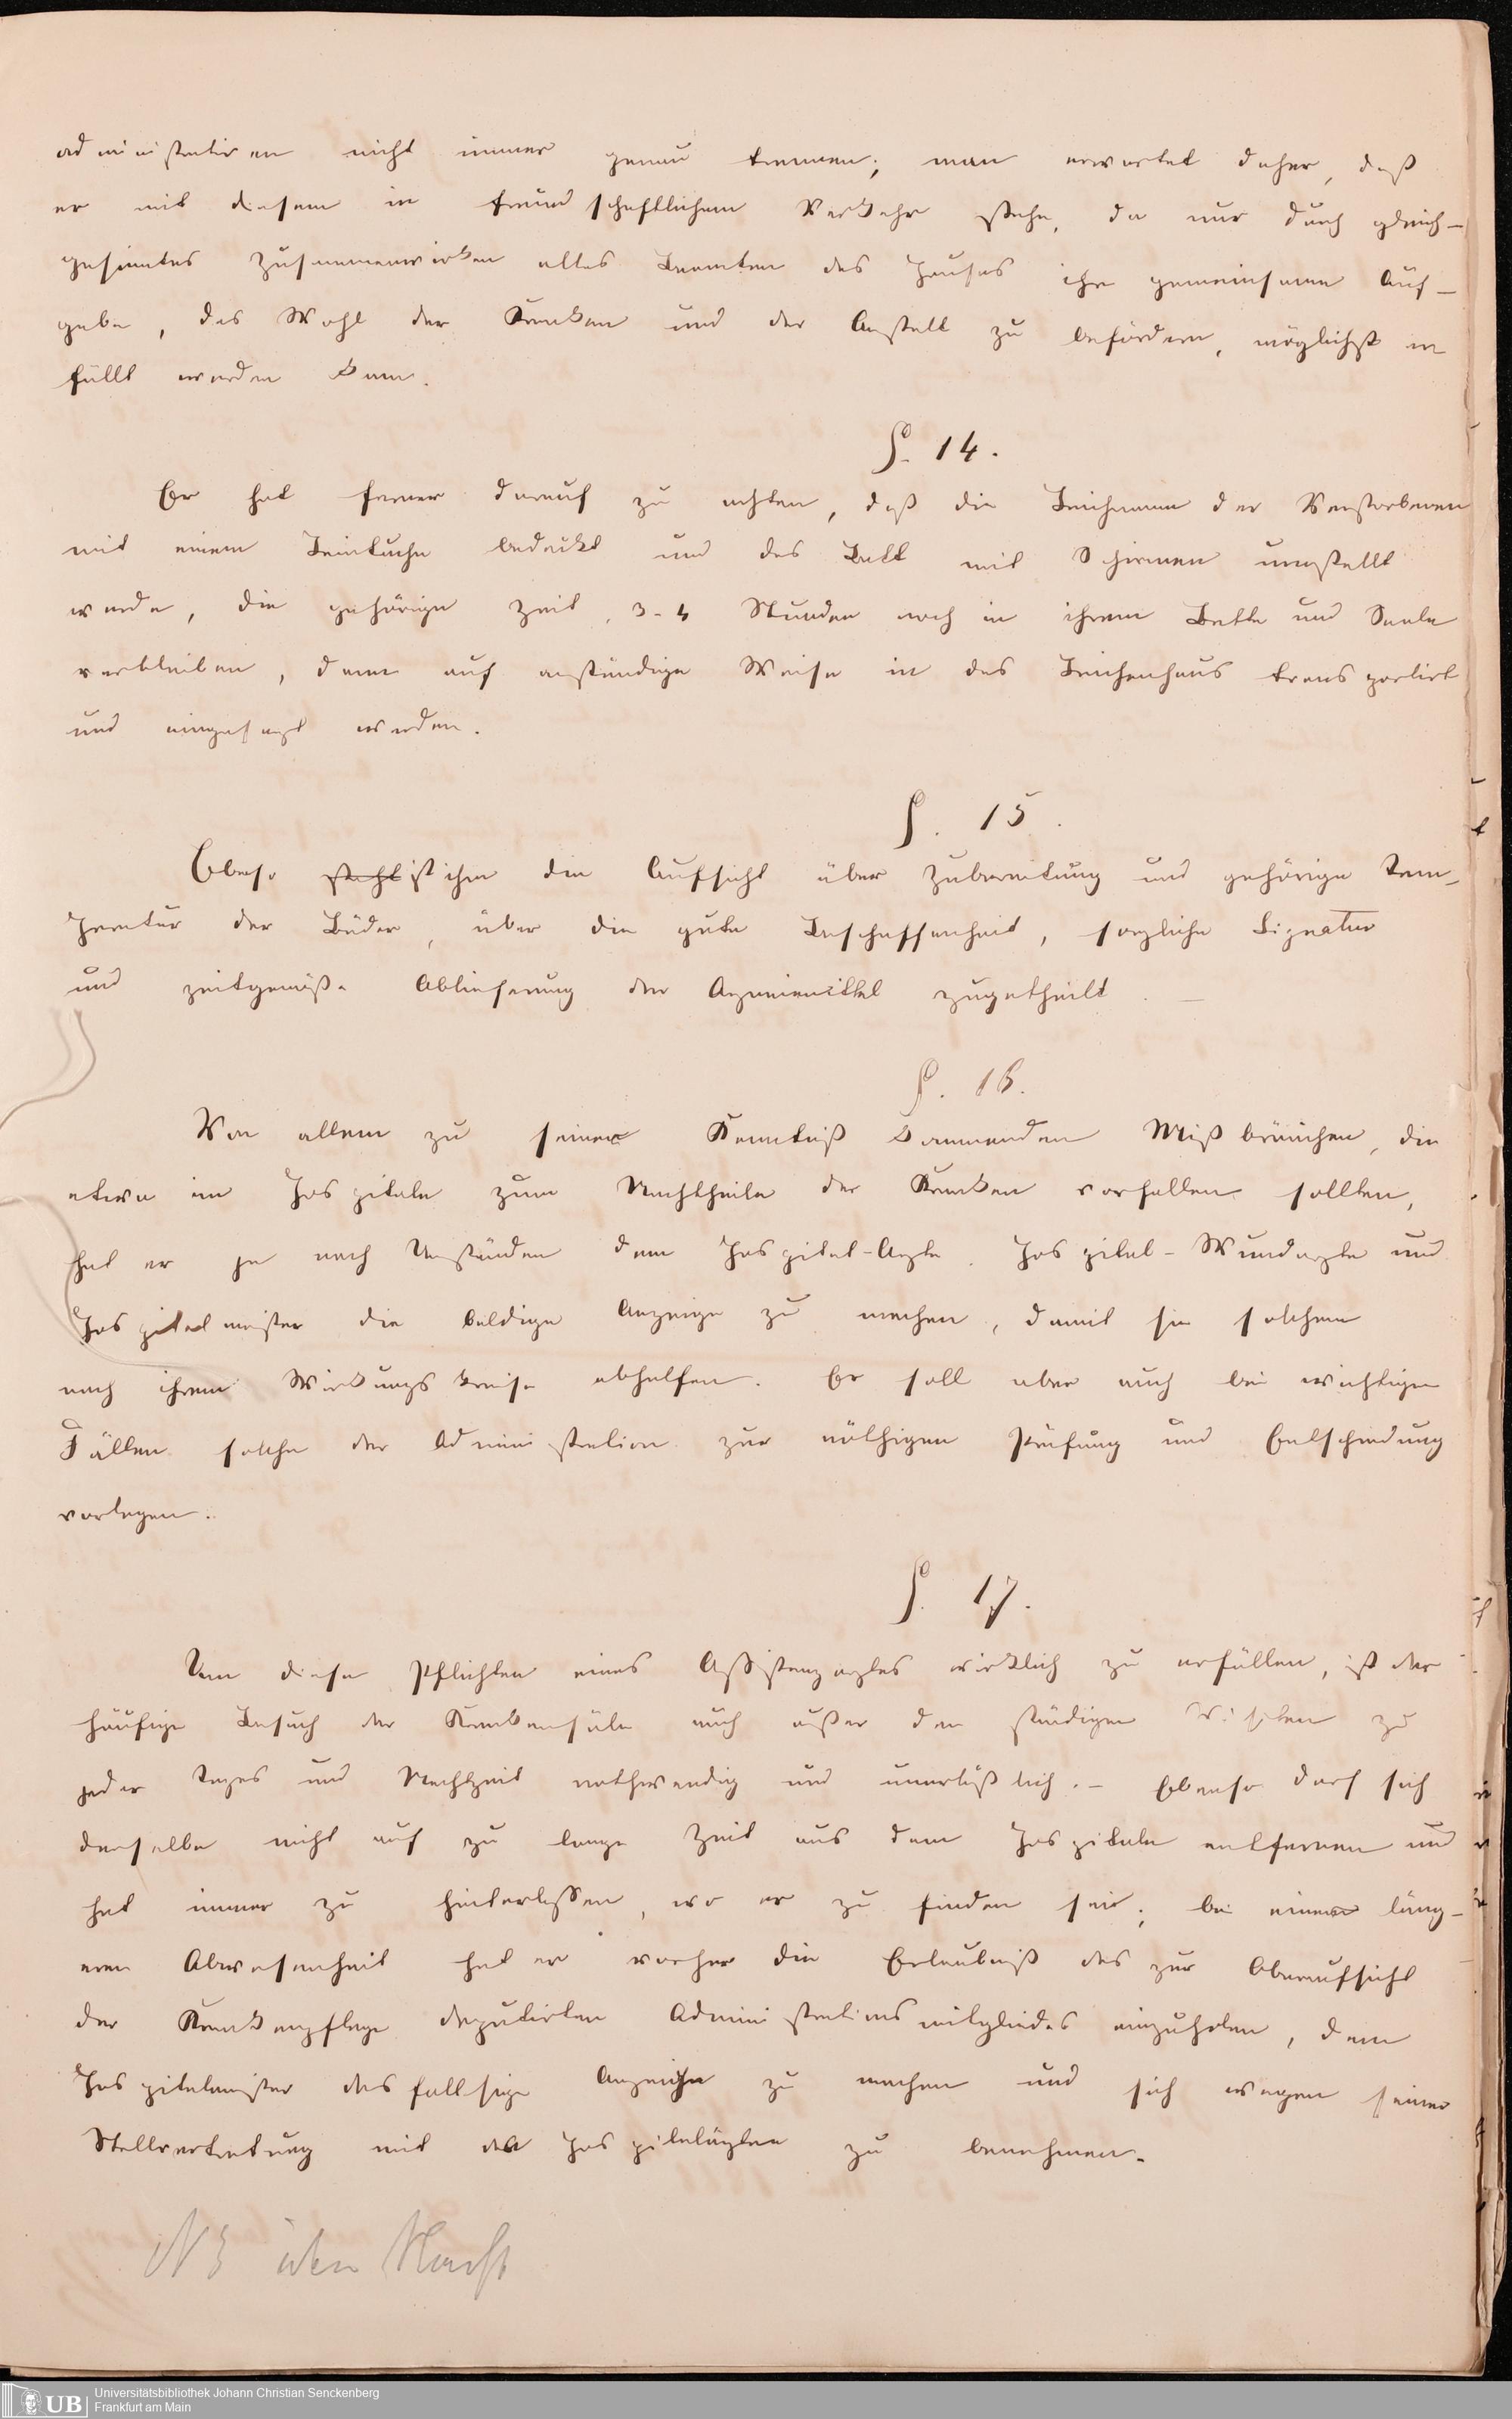 administrativen nicht immer genau trennen; man erwartet daher, daß
er mit diesem in freundschaftlichem Verkehr stehe, da nur durch gleich-
gesinntes Zusammenwirken aller Beamten des Hauses ihre gemeinsame Auf-
gabe, das Wohl der Kranken und der Anstalt zu befördern, möglichst er
füllt werden kann.
§. 14.
Er hat ferner darauf zu achten, daß die Leichname der Verstorbenen
mit einem Leintuche bedeckt und das Bett mit Schirmen umstellt
werde, die gehörige Zeit, 3-4 Stunden noch in ihrem Bette und Saale
verbleiben, dann auf anständige Weise in das Leichenhaus transportirt
und eingesargt werden.
§. 15.
Ebenso steht ist ihm die Aufsicht über Zubereitung und gehörige Tem-
peratur der Bäder, über die gute Beschaffenheit, sorgliche Signatur
und zeitgemäße Ablieferung der Arzneimittel zugetheilt. —
§. 16.
Von allem zu seiner Kenntniß kommenden Mißbräuchen, die
etwa im Hospitale zum Nachtheile der Kranken vorfallen sollten,
hat er je nach Umständen dem Hospital-Arzte, Hospital-Wundarzte und
Hospitalmeister die baldige Anzeige zu machen, damit sie solchem
nach ihrem Wirkungskreise abhelfen. Er soll aber auch bei wichtigen
Fällen solche der Administration zur nöthigen Prüfung und Entscheidung
vorlegen.
§. 17.
Um diese Pflichten eines Assistenzarztes wirklich zu erfüllen, ist der
häufige Besuch der Krankensäle auch außer den ständigen Visiten zu
jeder Tages und Nachtzeit nothwendig und unerläßlich. – Ebenso darf sich
derselbe nicht auf zu lange Zeit aus dem Hospitale entfernen und
hat immer zu hinterlassen, wo er zu finden sei; bei einer läng-
eren Abwesenheit hat er vorher die Erlaubniß des zur Oberaufsicht
der Krankenpflege deputirten Administrationsmitgliedes einzuholen, dem
Hospitalmeister desfallsige Anzeige zu machen und sich wegen seiner
Stellvertretung mit den Hospitalärzten zu benehmen.
NB
Universitätsbibliothek Johann Christian Senckenberg
Frankfurt am Main
UB